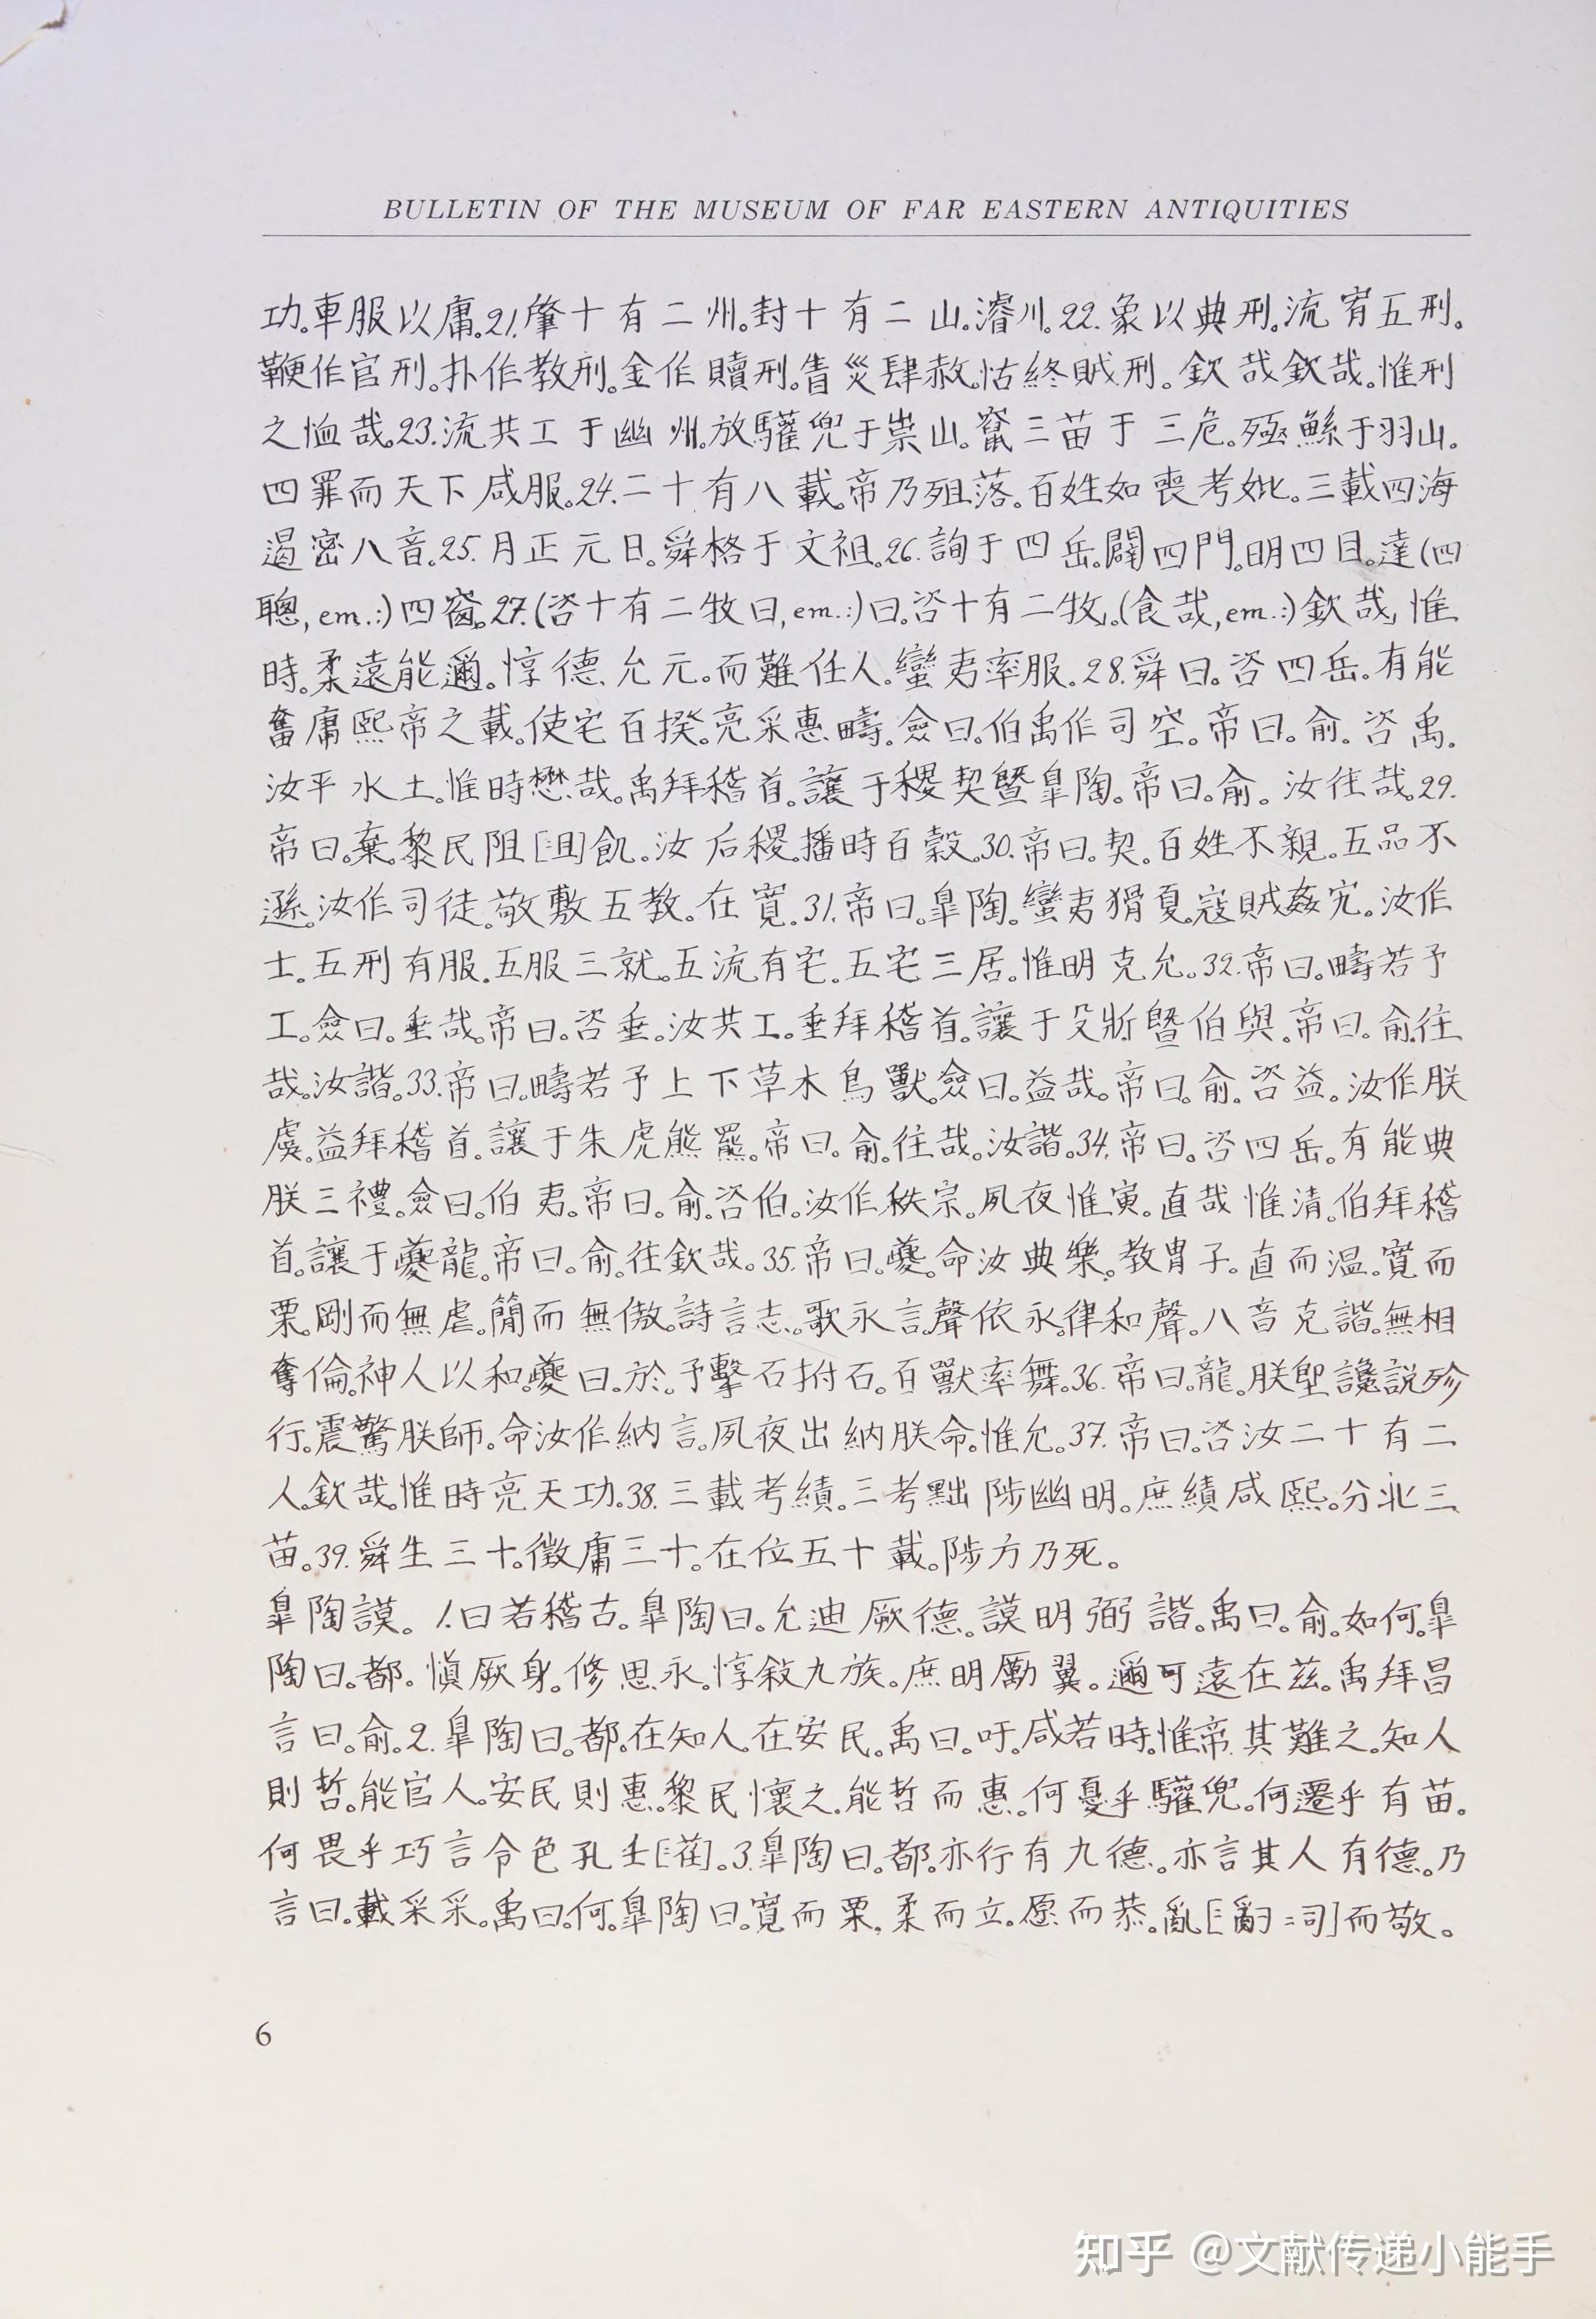 BULLETIN OF THE MUSEUM OF FAR EASTERN ANTIQUITIES
功。車服以庸。21.肇十有二州。封十有二山。濬川。22.象以典刑。流宥五刑。
鞭作官刑。扑作教刑。金作贖刑。眚災肆赦。怙終賊刑。欽哉欽哉。惟刑
之恤哉。23.流共工于幽州。放驩兜于崇山。竄三苗于三危。殛鯀于羽山。
四罪而天下咸服。24.二十有八載。帝乃殂落。百姓如喪考妣。三載四海
遏密八音。25.月正元日。舜格于文祖。26.詢于四岳。闢四門。明四目。達(四
聰, em.:)四窗。27.(咨十有二牧曰, em.:)曰。咨十有二牧。(食哉, em.:)欽哉,惟
時。柔遠能邇。惇德允元。而難任人。蠻夷率服。28.舜曰。咨四岳。有能
奮庸熙帝之載。使宅百揆。亮采惠疇。僉曰。伯禹作司空。帝曰。俞。咨禹。
汝平水土。惟時懋哉。禹拜稽首。讓于稷契暨皐陶。帝曰。俞。汝往哉。29.
帝曰。棄。黎民阻[=沮]飢。汝后稷。播時百穀。30.帝曰。契。百姓不親。五品不
遜。汝作司徒。敬敷五教。在寬。31.帝曰。皐陶。蠻夷猾夏。寇賊姦宄。汝作
士。五刑有服。五服三就。五流有宅。五宅三居。惟明克允。32.帝曰。疇若予
工。僉曰。垂哉。帝曰。咨垂。汝共工。垂拜稽首。讓于殳斨暨伯與。帝曰。俞。往
哉。汝諧。33.帝曰。疇若予上下草木鳥獸。僉曰。益哉。帝曰。俞。咨益。汝作朕
虞。益拜稽首。讓于朱虎熊羆。帝曰。俞。往哉。汝諧。34.帝曰。咨四岳。有能典
朕三禮。僉曰。伯夷。帝曰。俞。咨伯。汝作秩宗。夙夜惟寅。直哉惟清。伯拜稽
首。讓于夔龍。帝曰。俞。往欽哉。35.帝曰。夔。命汝典樂。教胄子。直而溫。寬而
栗。剛而無虐。簡而無傲。詩言志。歌永言。聲依永。律和聲。八音克諧。無相
奪倫。神人以和。夔曰。於。予擊石拊石。百獸率舞。36.帝曰。龍。朕堲讒說殄
行。震驚朕師。命汝作納言。夙夜出納朕命。惟允。37.帝曰。咨汝二十有二
人。欽哉。惟時亮天功。38.三載考績。三考黜陟幽明。庶績咸熙。分北三
苗。39.舜生三十。徵庸三十。在位五十載。陟方乃死。
皐陶謨。1.曰若稽古。皐陶曰。允迪厥德。謨明弼諧。禹曰。俞。如何。皐
陶曰。都。愼厥身。修思永。惇敍九族。庶明勵翼。邇可遠在茲。禹拜昌
言曰。俞。2.皐陶曰。都。在知人。在安民。禹曰。吁。咸若時。惟帝其難之。知人
則哲。能官人。安民則惠。黎民懷之。能哲而惠。何憂乎驩兜。何遷乎有苗。
何畏乎巧言令色孔壬[=𡈼]。3.皐陶曰。都。亦行有九德。亦言其人有德。乃
言曰。載采采。禹曰。何。皐陶曰。寬而栗。柔而立。愿而恭。亂[=𤔲=司]而敬。
6
知乎 @文献传递小能手